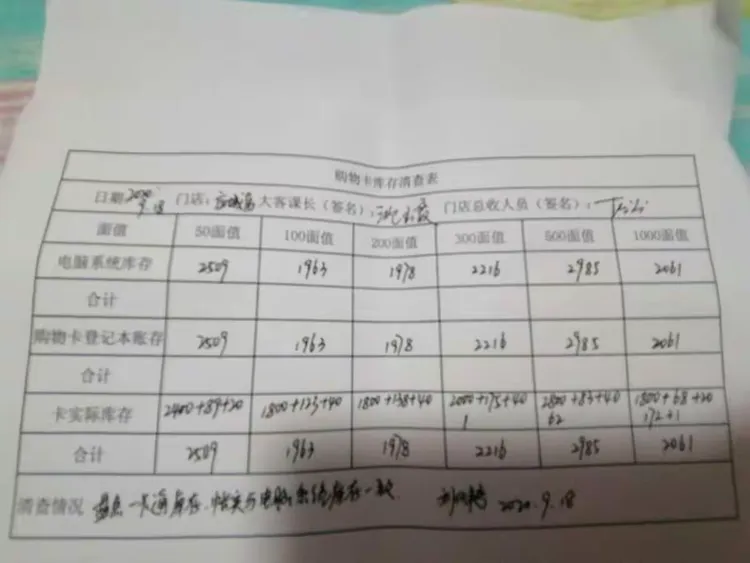 购物卡库存清查表
日期2020 9.18 门店: 大客课长（签名）: 门店总收人员（签名）:
面值 50面值 100面值 200面值 300面值 500面值 1000面值
电脑系统库存 2509 1963 1978 2216 2985 2061
合计
购物卡登记本账存 2509 1963 1978 2216 2985 2061
合计
卡实际库存 2400+89+20 1800+123+40 1800+138+40 2000+175+40 1 2800+83+40 62 1800+68+20 172+1
合计 2509 1963 1978 2216 2985 2061
清查情况 盘点一卡通库存、帐实与电脑系统库存一致. 2020.9.18